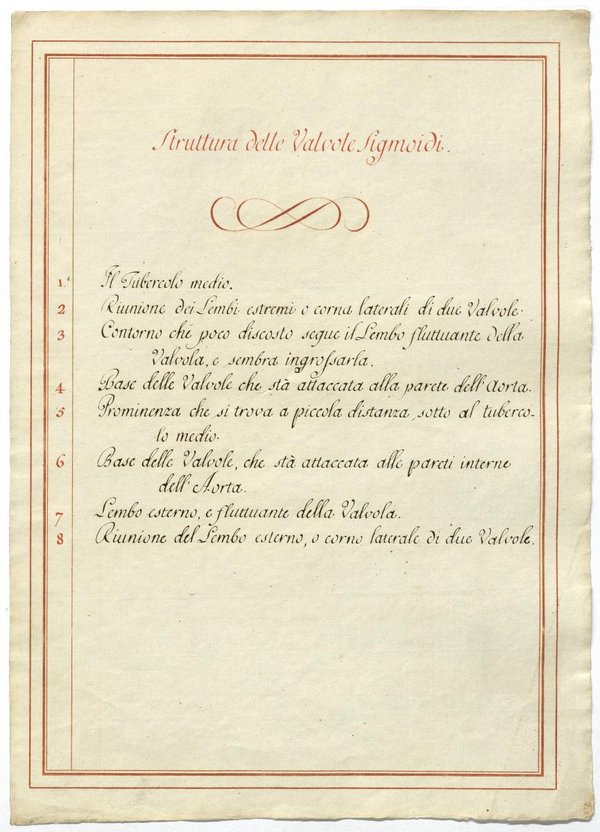 Struttura delle Valvole Sigmoidi.
1. Il Tubercolo medio.
2 Riunione dei Lembi estremi o corna laterali di due Valvole.
3 Contorno che poco discosto segue il Lembo fluttuante della
Valvola, e sembra ingrossarla.
4 Base delle Valvole che stà attaccata alla parete dell'Aorta.
5 Prominenza che si trova a piccola distanza sotto al tuberco-
lo medio.
6 Base delle Valvole, che stà attaccata alle pareti interne
dell'Aorta.
7 Lembo esterno, e fluttuante della Valvola.
8 Riunione del Lembo esterno, o corno laterale di due Valvole.